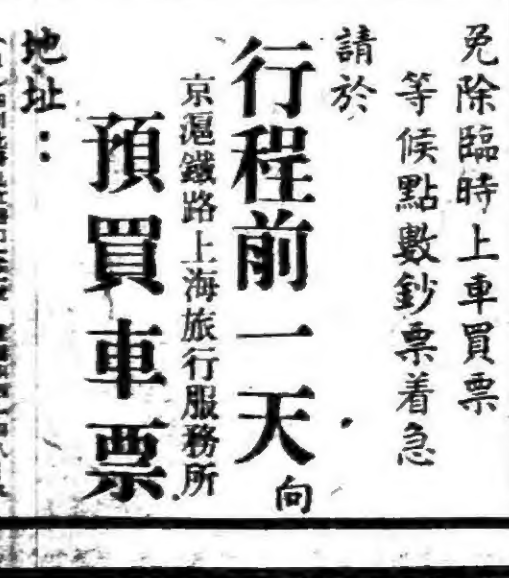 免除臨時上車買票
等候點數鈔票着急
請於
行程前一天向
京滬鐵路上海旅行服務所
預買車票
地址：